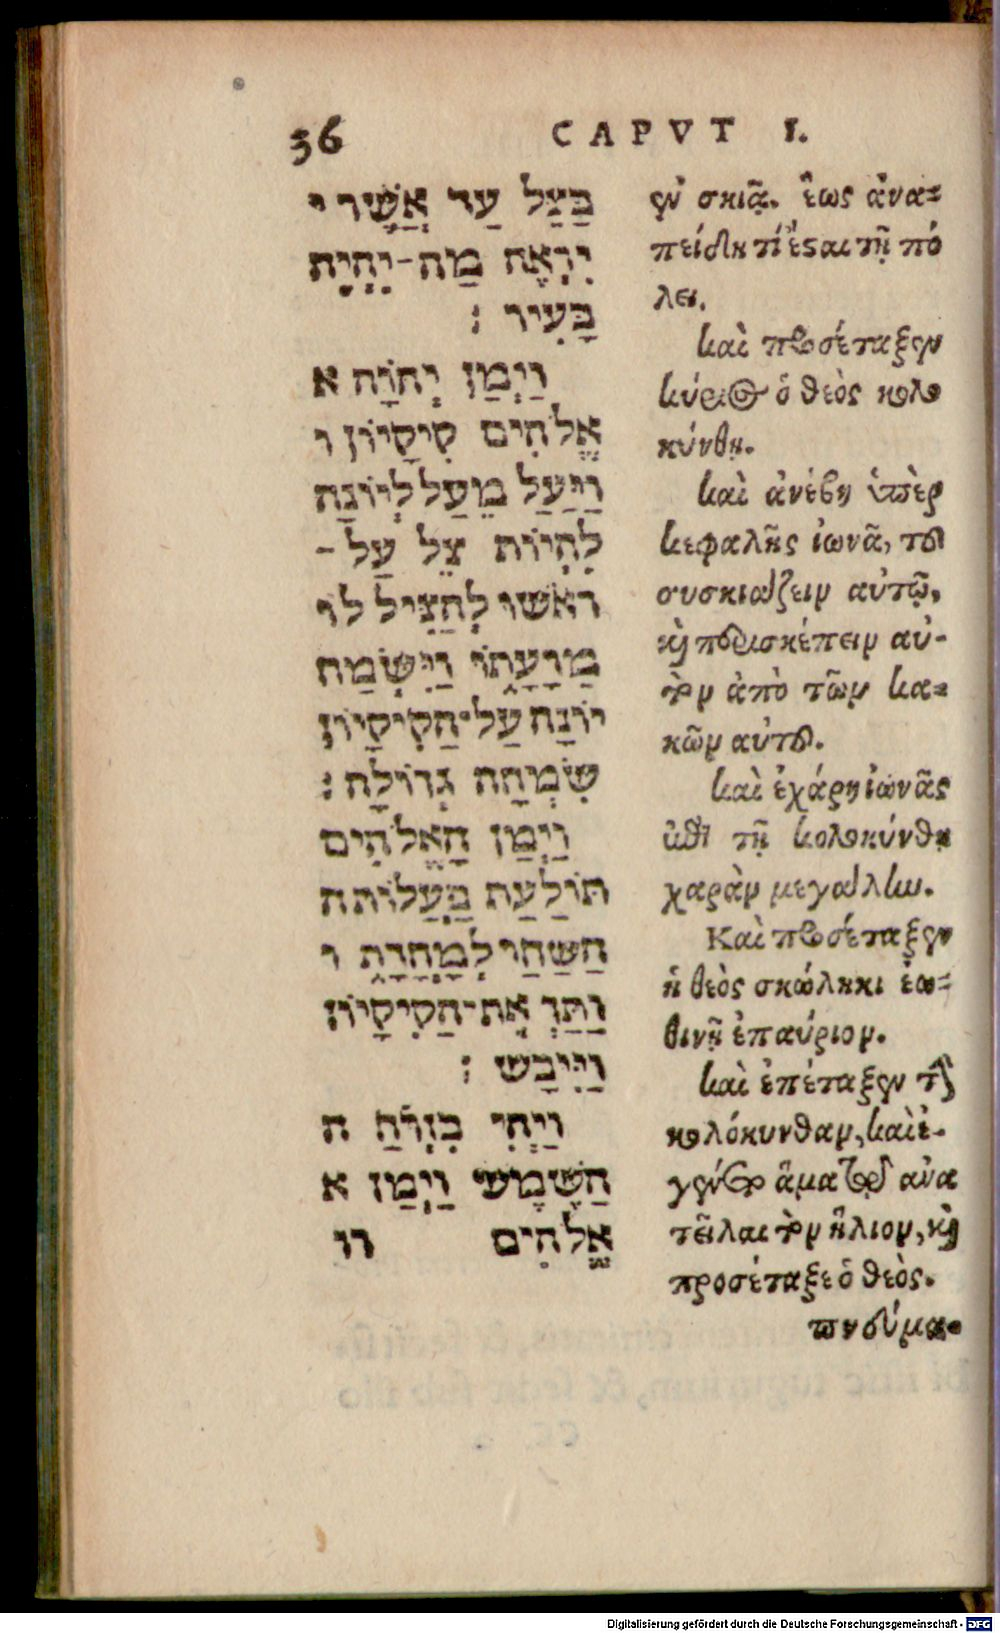 36
CAPVT I.
בַּצֵּל עַד אֲשֶׁר י
יִרְאֶה מַה־יִּהְיֶה
בָּעִיר :
וַיְמַן יְהוָֹה א
אֱלֹהִים קִיקָיוֹן ו
וַיַּעַל מֵעַל לְיוֹנָה
לִהְיוֹת צֵל עַל־
רֹאשׁוֹ לְהַצִּיל לוֹ
מֵרָעָתוֹ וַיִּשְׂמַח
יוֹנָה עַל־הַקִּיקָיוֹן
שִׂמְחָה גְדוֹלָה :
וַיְמַן הָאֱלֹהִים
תּוֹלַעַת בַּעֲלוֹת ה
הַשַּׁחַר לַמָּחֳרָת ו
וַתַּךְ אֶת־הַקִּיקָיוֹן
וַיִּיבָשׁ :
וַיְהִי כִּזְרֹחַ ה
הַשֶּׁמֶשׁ וַיְמַן א
אֱלֹהִים רו
ἐν σκιᾷ. ἕως ἀνα-
πείδῃ τί ἔςαι τῇ πό
λει.
καὶ προσέταξεν
κύριος ὁ θεὸς κολο
κύνθῃ.
καὶ ἀνέβη ὑπὲρ
κεφαλῆς ἰωνᾶ, τοῦ
συσκιάζειν αὐτῷ,
καὶ περισκέπειν αὐ-
τὸν ἀπὸ τῶν κα-
κῶν αὐτοῦ.
καὶ ἐχάρη ἰωνᾶς
ἐπὶ τῇ κολοκύνθῃ
χαρὰν μεγάλην.
Καὶ προσέταξεν
ὁ θεὸς σκώληκι ἑω-
θινῇ ἐπαύριον.
καὶ ἐπέταξεν τὴν
κολόκυνθαν, καὶ ἐ-
γένετο ἅμα τῷ ἀνα
τεῖλαι τὸν ἥλιον, καὶ
προσέταξε ὁ θεὸς.
πνεύμα-
Digitalisierung gefördert durch die Deutsche Forschungsgemeinschaft - DFG